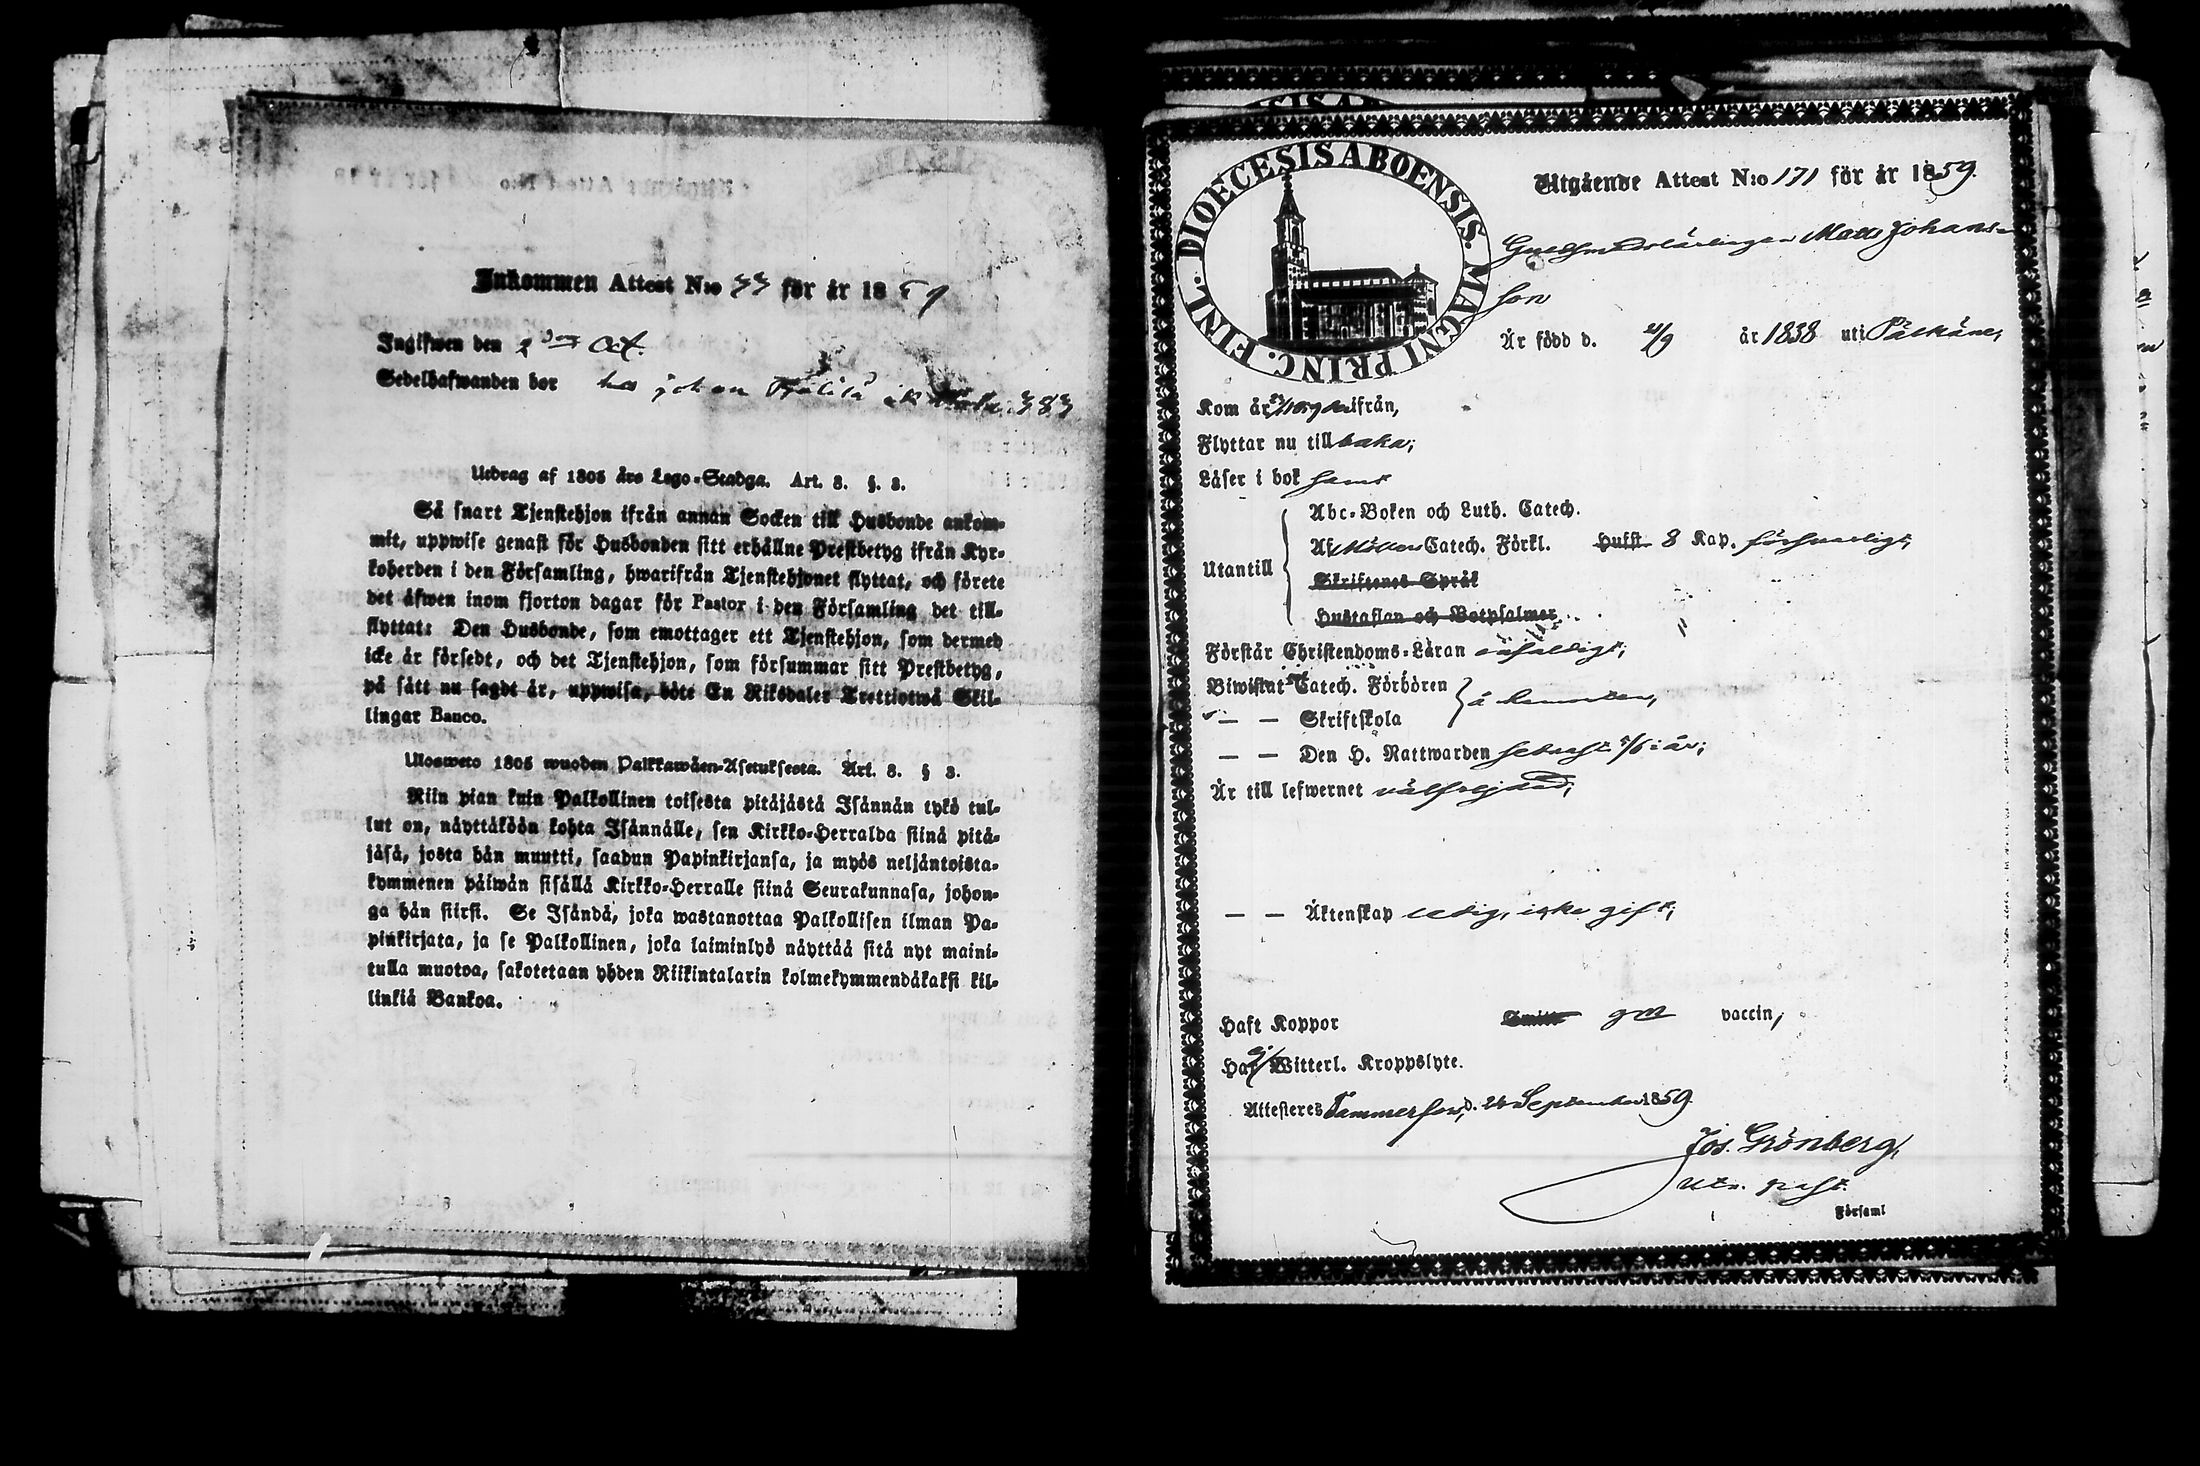 Inkommen Attest N:o 33 för år 1859
Ingifwen den 2 Oct.
Sedelhafwanden bor hos johan 383
Utdrag af 1805 års Lego-Stadga. Art. 8. §. 3.
Så snart Tjenstehjon ifrån annan Socken till Husbonde ankom-
mit, uppwise genast för Husbonden sitt erhållne Prestbetyg ifrån Kyr-
koherden i den Församling, hwarifrån Tjenstehjonet flyttat, och förete
det äfwen inom fjorton dagar för Pastor i den Församling det till-
flyttat: Den Husbonde, som emottager ett Tjenstehjon, som dermed
icke är försedt, och det Tjenstehjon, som försummar sitt Prestbetyg,
på sätt nu sagdt är, uppwisa, böte En Riksdaler Trettiotwå Skil-
lingar Banco.
Uloswеto 1805 wuoden Palkkawäen-Asetuksesta. Art. 8. § 3.
Niin pian kuin Palkollinen toisesta pitäjästä Isännän tykö tul-
lut on, näyttäköön kohta Isännälle, sen Kirkko-Herralda siinä pitä-
jäsä, josta hän muutti, saadun Papinkirjansa, ja myös neljäntoista-
kymmenen päiwän sisällä Kirkko-Herralle siinä Seurakunnasa, johon-
ga hän siirsi. Se Isändä, joka wastanottaa Palkollisen ilman Pa-
pinkirjata, ja se Palkollinen, joka laiminlyö näyttää sitä nyt maini-
tulla muotoa, sakotetaan yhden Riikintalarin kolmekymmendäkaksi kil-
linkiä Bankoa.
FINL. DIOECESIS ABOENSIS. MAGNI PRINC.
Utgående Attest N:o 171 för år 1859.
Mats Johans-
son
Är född d. 21/9 år 1838 uti Pälkäne,
Kom år härifrån,
Flyttar nu till baka;
Läser i bok
Utantill
Abc-Boken och Luth. Catech.
Af Möllers Catech. Förkl. Hufst. 8 Kap. försvarligt,
Skriftenes Språk
Hustaflan och Botpsalmer
Förstår Christendoms-Läran enfaldigt;
Biwistat Catech. Förhören
— — Skriftskola
å hemorten,
— — Den H. Nattwarden sednast i år;
Är till lefwernet välfrejdad;
— — Äktenskap ledig, icke gift;
Haft Koppor Smitt gm vaccin,
Har ej Witterl. Kroppslyte.
Attesteres Tammerfors, d. 24 September 1859.
Jos. Grönberg,
past.
Församl